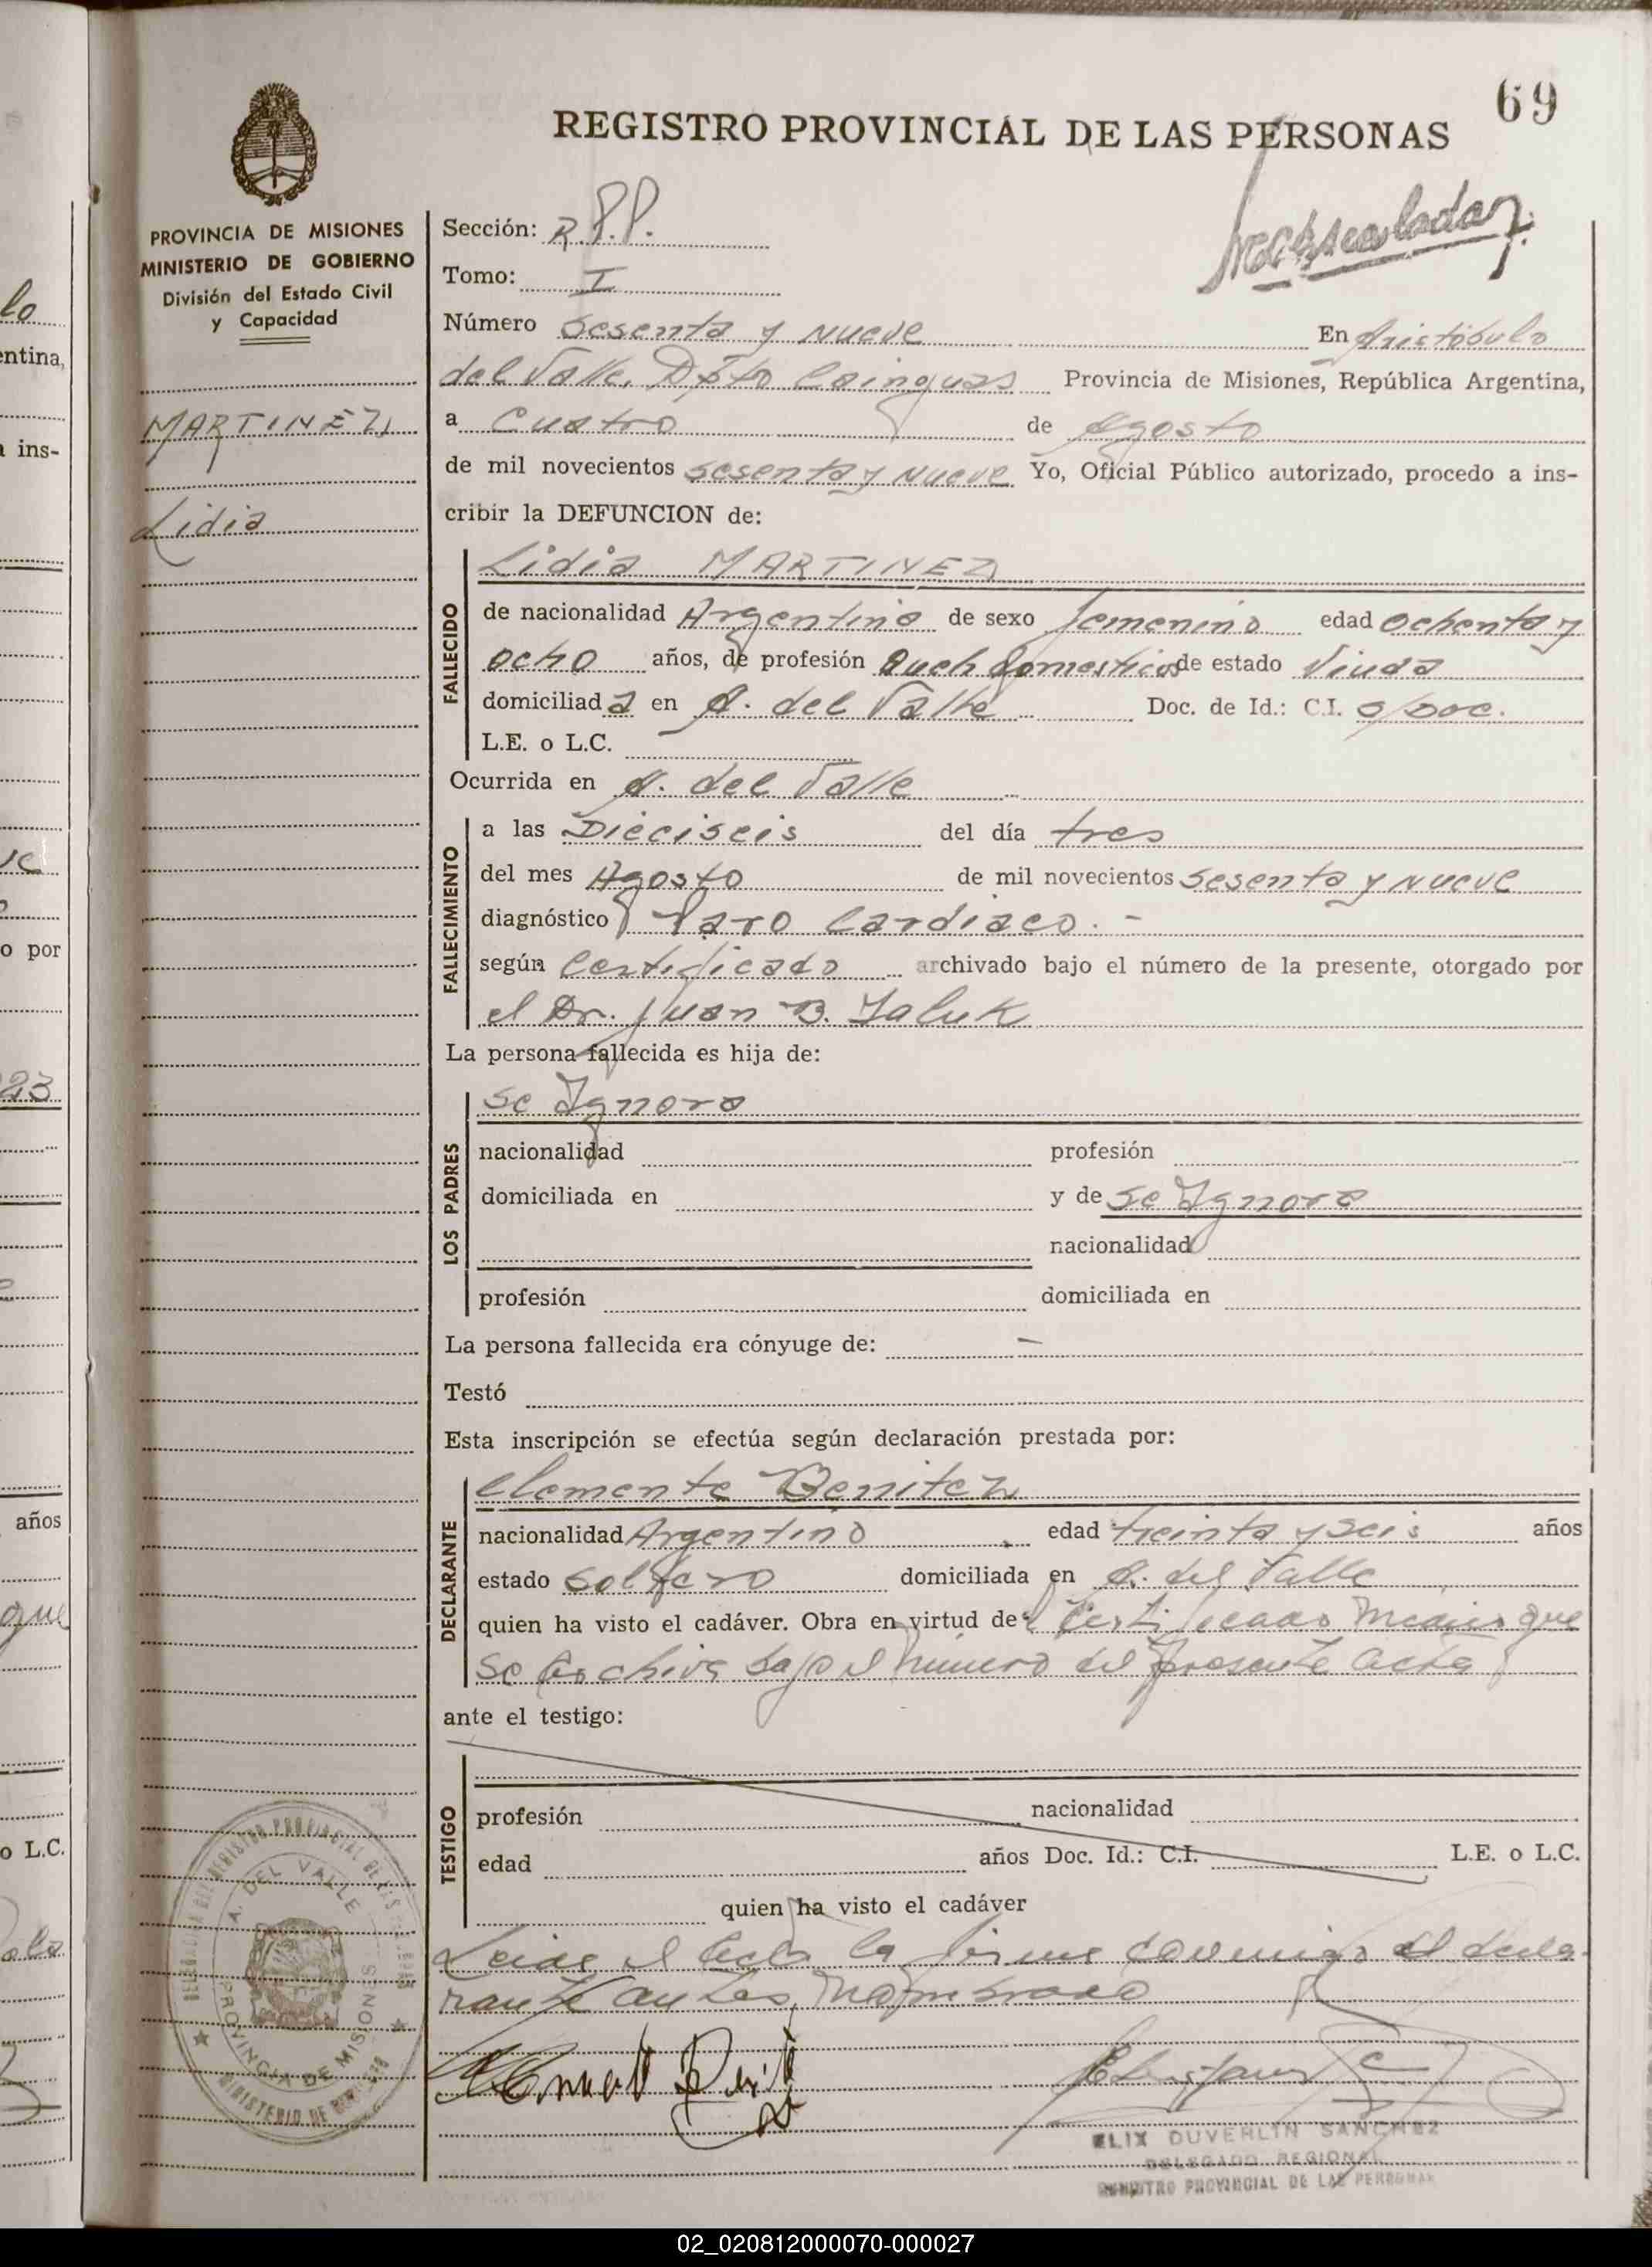 69
REGISTRO PROVINCIAL DE LAS PERSONAS
PROVINCIA DE MISIONES
MINISTERIO DE GOBIERNO
División del Estado Civil
y Capacidad
MARTINEZ,
Lidia
Sección: R.P.P.
Tomo: I
Número Sesenta y Nueve En Aristóbulo
del Valle, Dpto Cainguas Provincia de Misiones, República Argentina,
a Cuatro de Agosto
de mil novecientos sesenta y Nueve Yo, Oficial Público autorizado, procedo a ins-
cribir la DEFUNCION de:
FALLECIDO
Lidia MARTINEZ
de nacionalidad Argentina de sexo femenino edad Ochenta y
ocho años, de profesión Queh domesticos de estado Viuda
domiciliada en A. del Valle Doc. de Id.: C.I. s/Doc.
L.E. o L.C.
Ocurrida en A. del Valle
FALLECIMIENTO
a las Dieciseis del día tres
del mes Agosto de mil novecientos sesenta y Nueve
diagnóstico Paro Cardiaco. -
según Certificado archivado bajo el número de la presente, otorgado por
el Dr. Juan B. Jaluk
La persona fallecida es hija de:
LOS PADRES
se Ignora
nacionalidad profesión
domiciliada en y de se Ignora
nacionalidad
profesión domiciliada en
La persona fallecida era cónyuge de: -
Testó
Esta inscripción se efectúa según declaración prestada por:
DECLARANTE
Clemente Benitez
nacionalidad Argentino edad treinta y seis años
estado soltero domiciliada en A. del Valle
quien ha visto el cadáver. Obra en virtud del Certificado Medico que
se Archiva bajo el número del presente acta
ante el testigo:
TESTIGO
profesión nacionalidad
edad años Doc. Id.: C.I. L.E. o L.C.
quien ha visto el cadáver
Leida el Acta la firma conmigo el decla-
rante antes Nombrado
A. DEL VALLE
PROVINCIA DE MISIONES
MINISTERIO DE
ELIX DUVERLIN SANCHEZ
DELEGADO REGIONAL
REGISTRO PROVINCIAL DE LAS PERSONAS
lo
entina,
ins-
o por
23
años
que
o L.C.
02_020812000070-000027